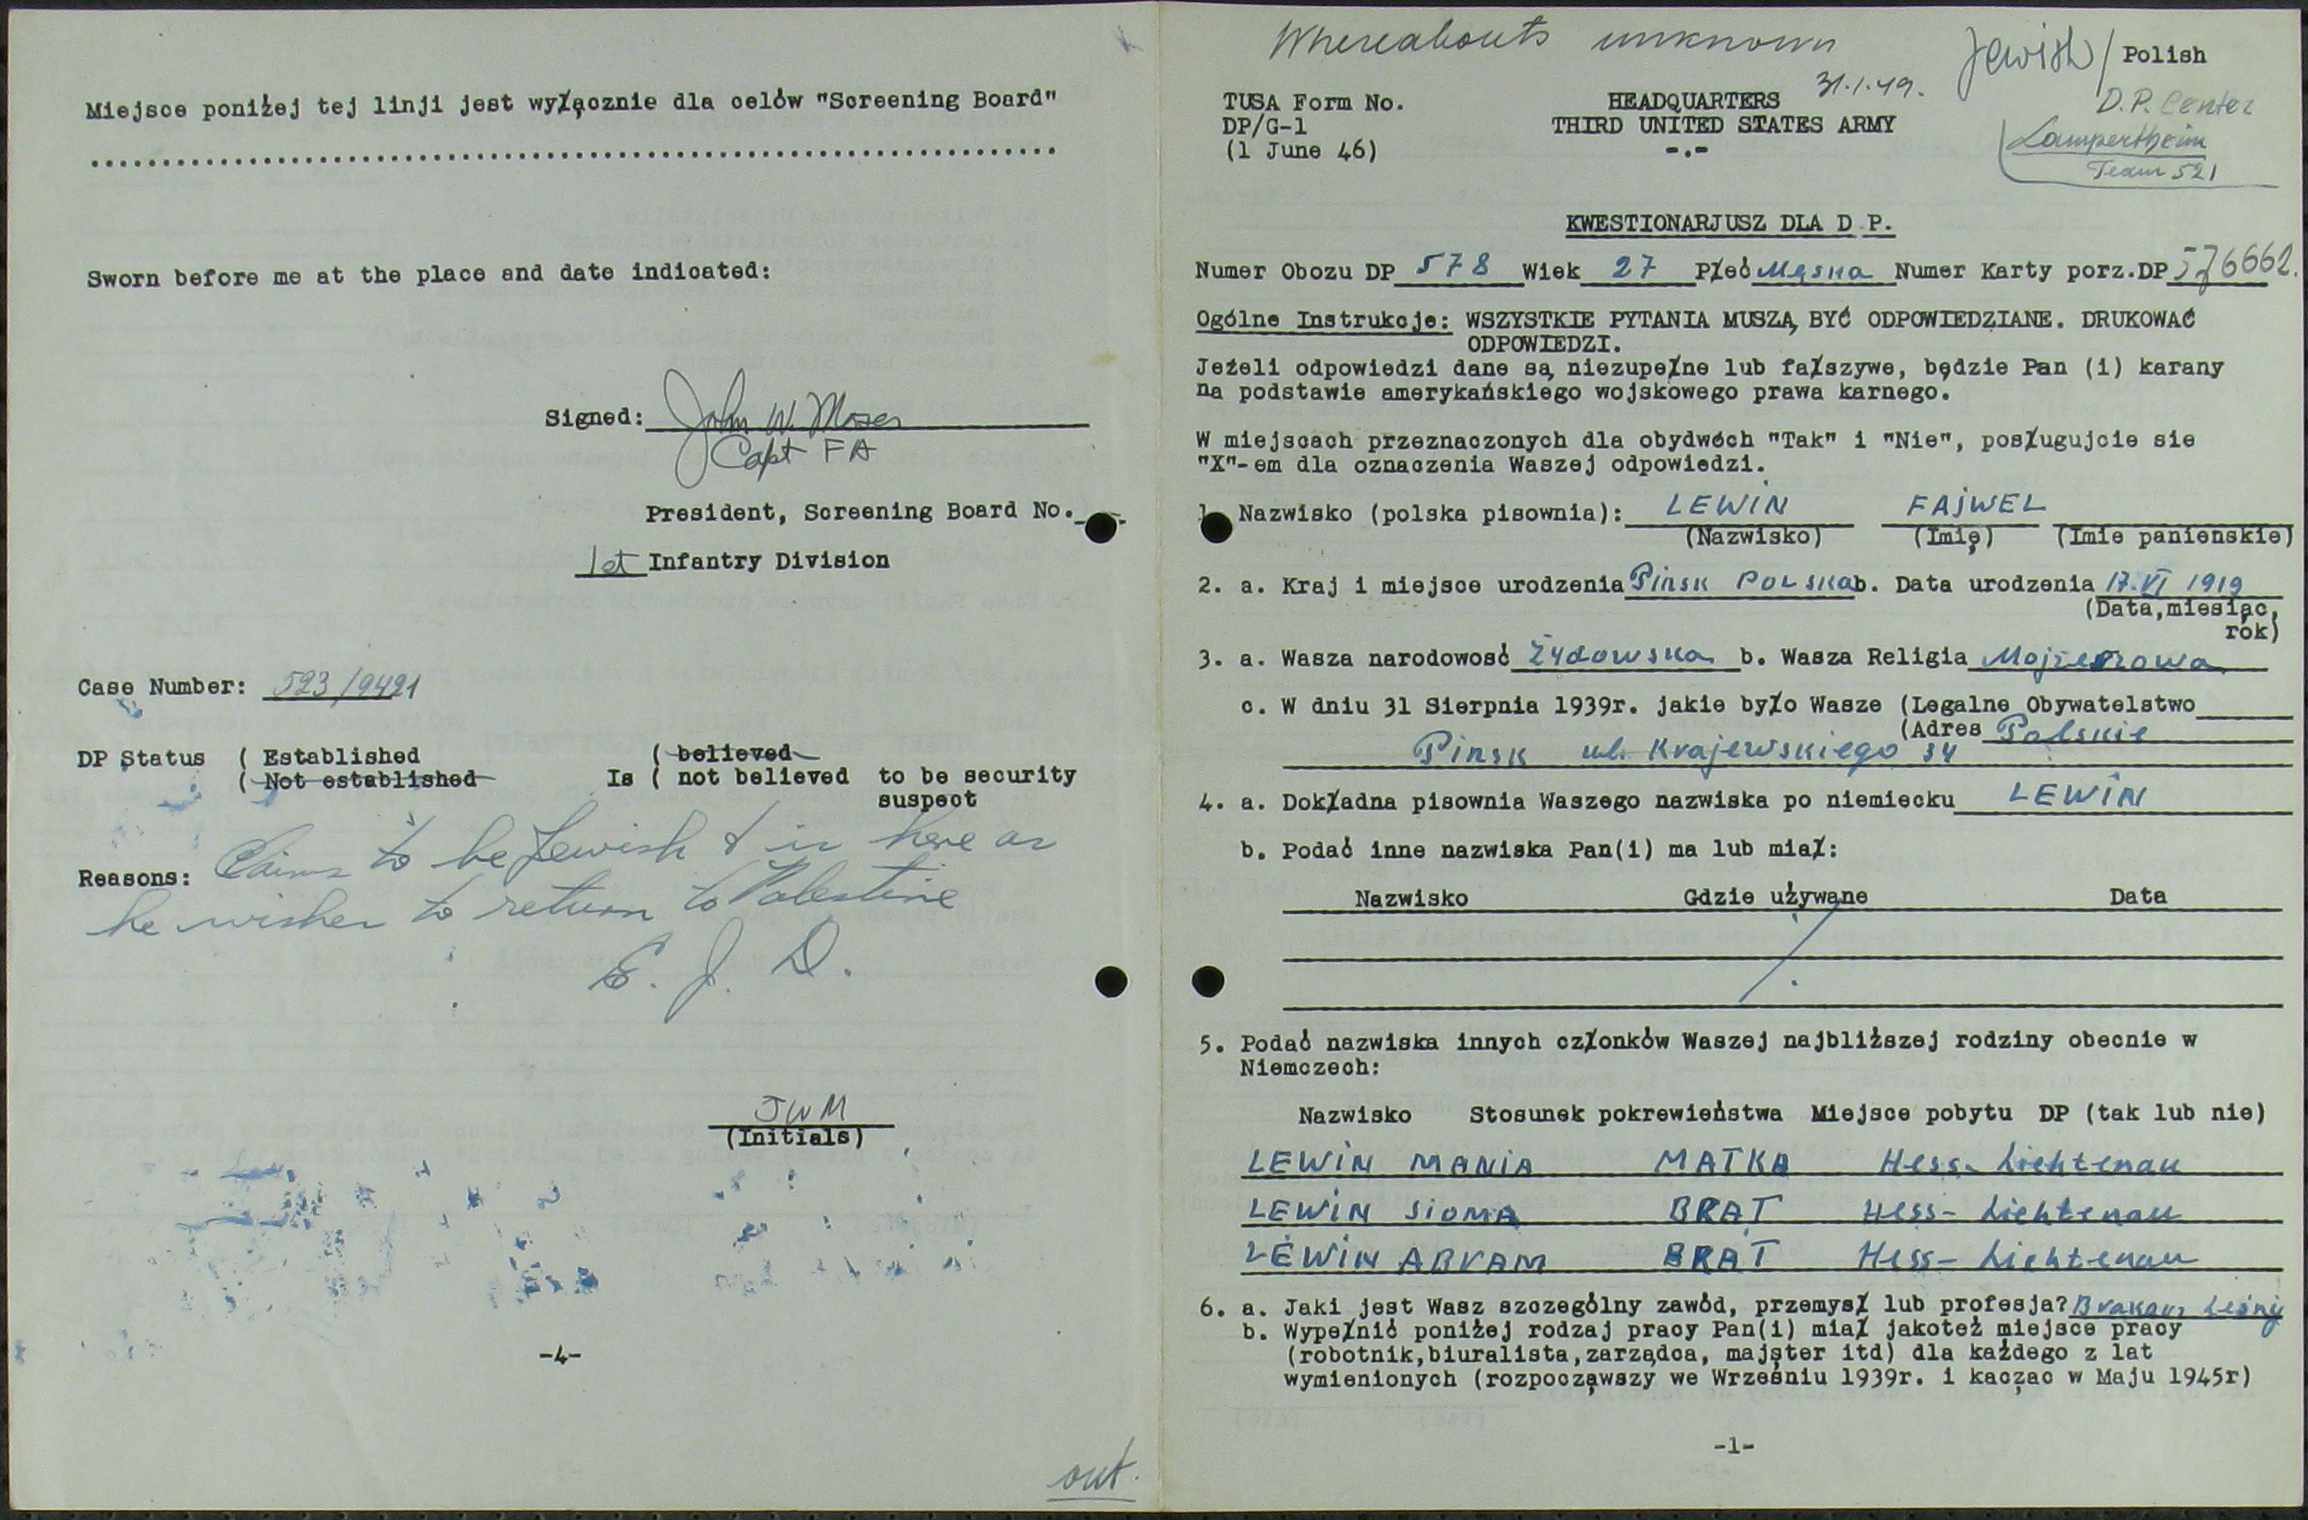 Miejsce poniżej tej linji jest wyłącznie dla celów "Screening Board"
Sworn before me at the place and date indicated:
Signed: John W. Moser
Capt FA
President, Screening Board No.
1st Infantry Division
Case Number: 523/9421
DP Status ( Established ( believed
( Not established Is ( not believed to be security
suspect
Reasons: Claims to be Jewish & is here as
he wishes to return to Palestine
E. J. D.
JWM
(Initials)
-4-
out.
Whereabouts unknown
31.1.49.
Jewish / Polish
D.P. Center
Lampertheim
Team 521
TUSA Form No.
DP/G-1
(1 June 46)
HEADQUARTERS
THIRD UNITED STATES ARMY
-.-
KWESTIONARJUSZ DLA D P.
Numer Obozu DP 578 Wiek 27 Płeć Męska Numer Karty porz.DP 576662.
Ogólne Instrukcje: WSZYSTKIE PYTANIA MUSZĄ BYĆ ODPOWIEDZIANE. DRUKOWAĆ
ODPOWIEDZI.
Jeżeli odpowiedzi dane są niezupełne lub fałszywe, będzie Pan (i) karany
na podstawie amerykańskiego wojskowego prawa karnego.
W miejscach przeznaczonych dla obydwóch "Tak" i "Nie", posługujcie sie
"X"-em dla oznaczenia Waszej odpowiedzi.
1 Nazwisko (polska pisownia): LEWIN FAJWEL
(Nazwisko) (Imię) (Imie panienskie)
2. a. Kraj i miejsce urodzenia Pinsk POLSKA b. Data urodzenia 17.VI 1919
(Data,miesiąc,
rók)
3. a. Wasza narodowość Żydowska b. Wasza Religia Mojżeszowa
c. W dniu 31 Sierpnia 1939r. jakie było Wasze (Legalne Obywatelstwo
(Adres Polskie
Pinsk ul. Krajewskiego 34
4. a. Dokładna pisownia Waszego nazwiska po niemiecku LEWIN
b. Podać inne nazwiska Pan(i) ma lub miał:
Nazwisko Gdzie używane Data
5. Podać nazwiska innych członków Waszej najbliższej rodziny obecnie w
Niemczech:
Nazwisko Stosunek pokrewieństwa Miejsce pobytu DP (tak lub nie)
LEWIN MANIA MATKA Hess- Lichtenau
LEWIN SIOMA BRAT Hess- Lichtenau
LEWIN ABRAM BRAT Hess- Lichtenau
6. a. Jaki jest Wasz szczególny zawód, przemysł lub profesja? Brakarz Leśny
b. Wypełnić poniżej rodzaj pracy Pan(i) miał jakoteż miejsce pracy
(robotnik,biuralista,zarządca, majster itd) dla każdego z lat
wymienionych (rozpocząwszy we Wrześniu 1939r. i kacząc w Maju 1945r)
-1-